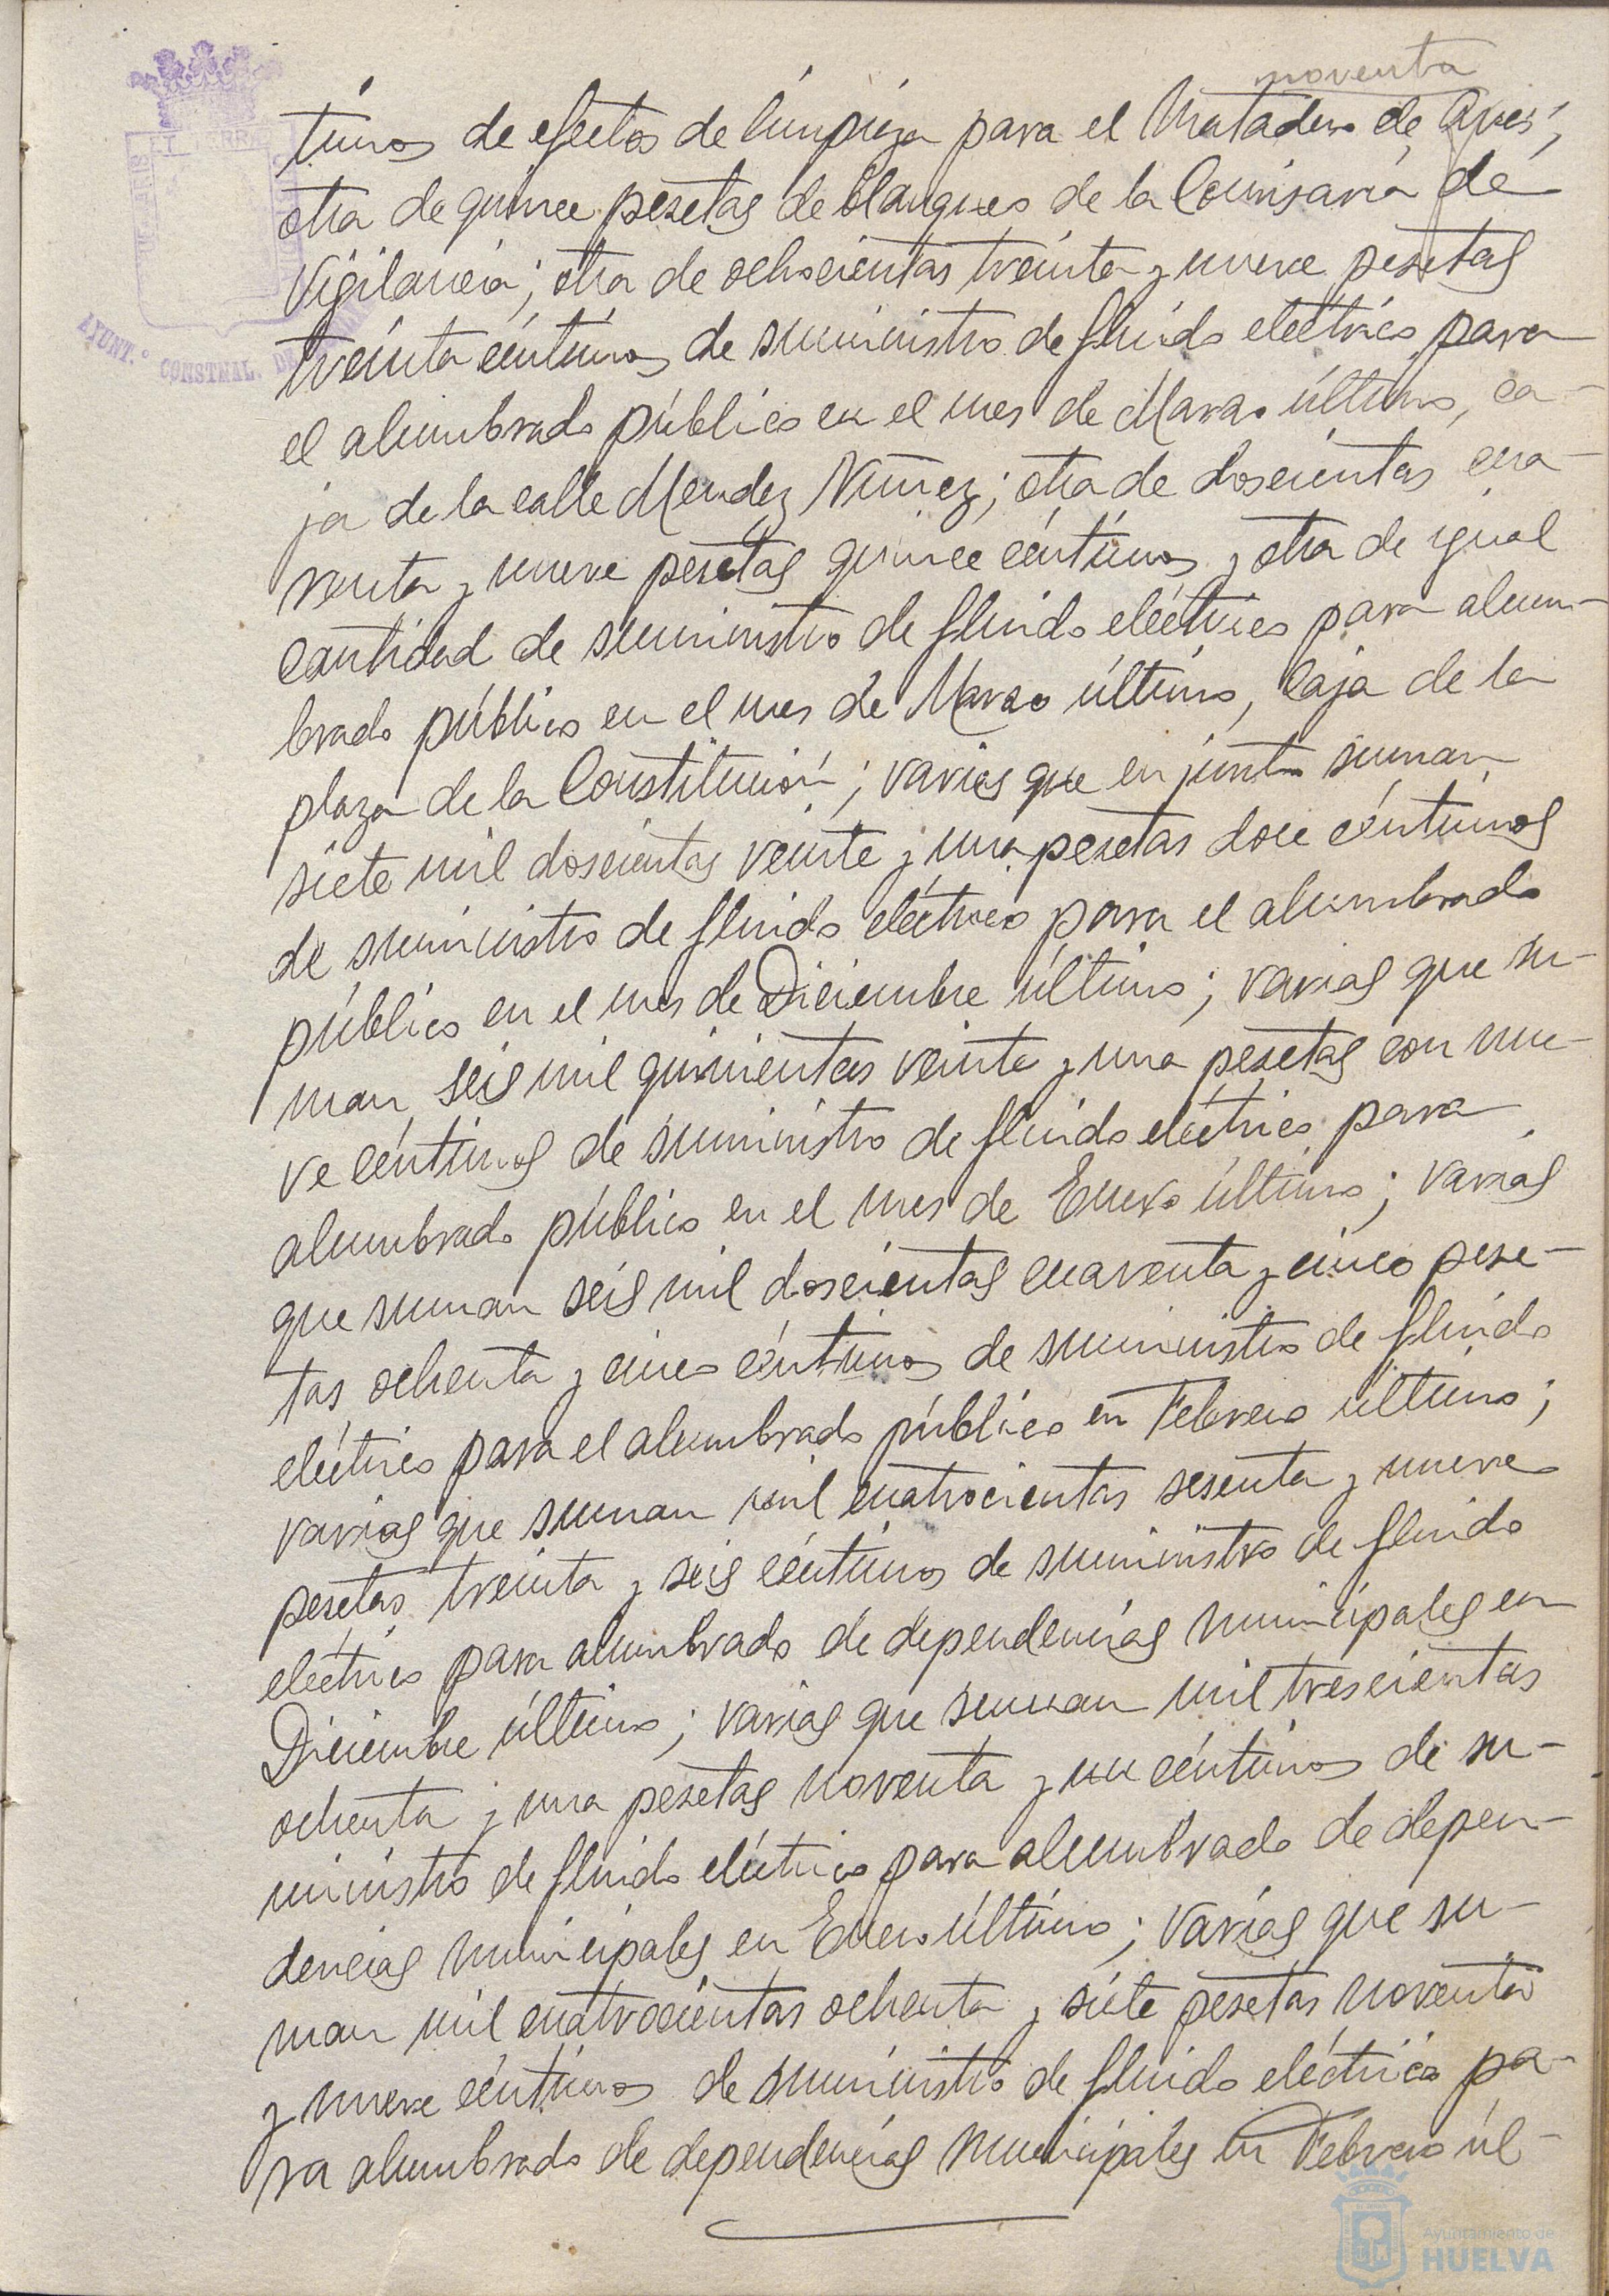 noventa
timos de efectos de limpieza para el Matadero de Aves;
otra de quince pesetas de blanqueo de la Comisaría de
Vigilancia; otra de ochocientas treinta y nueve pesetas
treinta céntimos de suministro de fluido eléctrico para
el alumbrado público en el mes de Marzo último, ca-
ja de la calle Mendez Núñez; otra de doscientas cua-
renta y nueve pesetas quince céntimos y otra de igual
cantidad de suministro de fluido eléctrico para alum-
brado público en el mes de Marzo último, caja de la
plaza de la Constitución; varias que en junto suman
siete mil doscientas veinte y una pesetas doce céntimos
de suministro de fluido eléctrico para el alumbrado
público en el mes de Diciembre último; varias que su-
man seis mil quinientas veinte y una pesetas con nue-
ve céntimos de suministro de fluido eléctrico para
alumbrado público en el mes de Enero último; varias
que suman seis mil doscientas cuarenta y cinco pese-
tas ochenta y cinco céntimos de suministro de fluido
eléctrico para el alumbrado público en Febrero último;
varias que suman mil cuatrocientas sesenta y nueve
pesetas treinta y seis céntimos de suministro de fluido
eléctrico para alumbrado de dependencias municipales en
Diciembre último; varias que suman mil trescientas
ochenta y una pesetas noventa y un céntimos de su-
ministro de fluido eléctrico para alumbrado de depen-
dencias municipales en Enero último; varias que su-
man mil cuatrocientas ochenta y siete pesetas noventa
y nueve céntimos de suministro de fluido eléctrico pa-
ra alumbrado de dependencias municipales en Febrero úl-
AYUNT.º CONSTNAL. DE
Ayuntamiento de
HUELVA